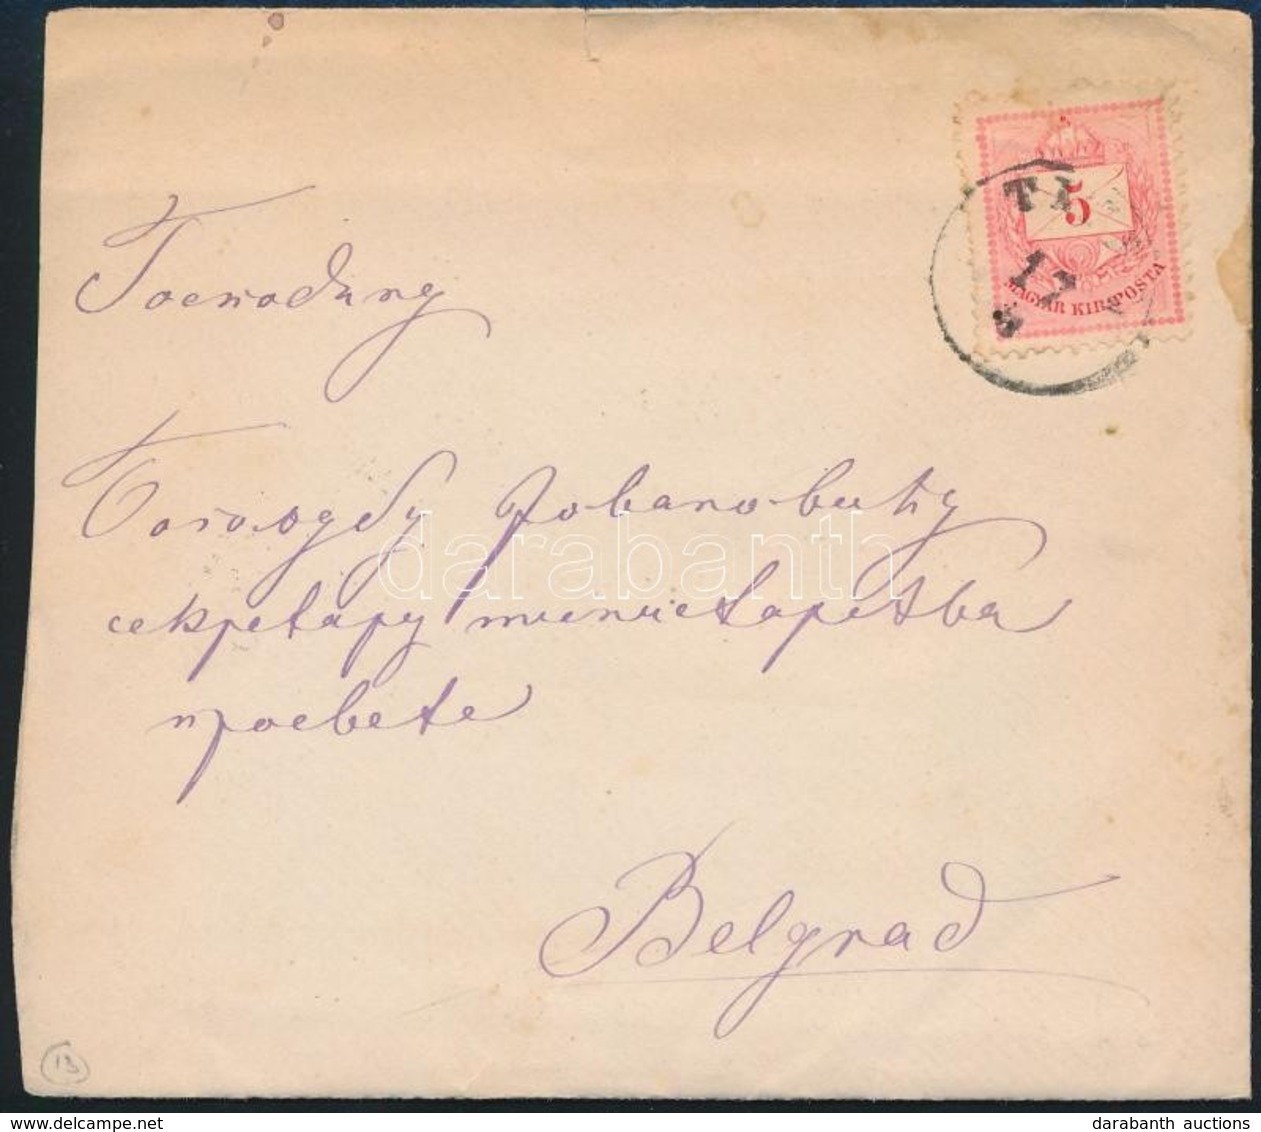 Господину
Богољубу Јовановићу
секретару министарства
просвете
Belgrad
5
MAGYAR KIR. POSTA
17
13
darabanth
delcampe.net
darabanth auctions